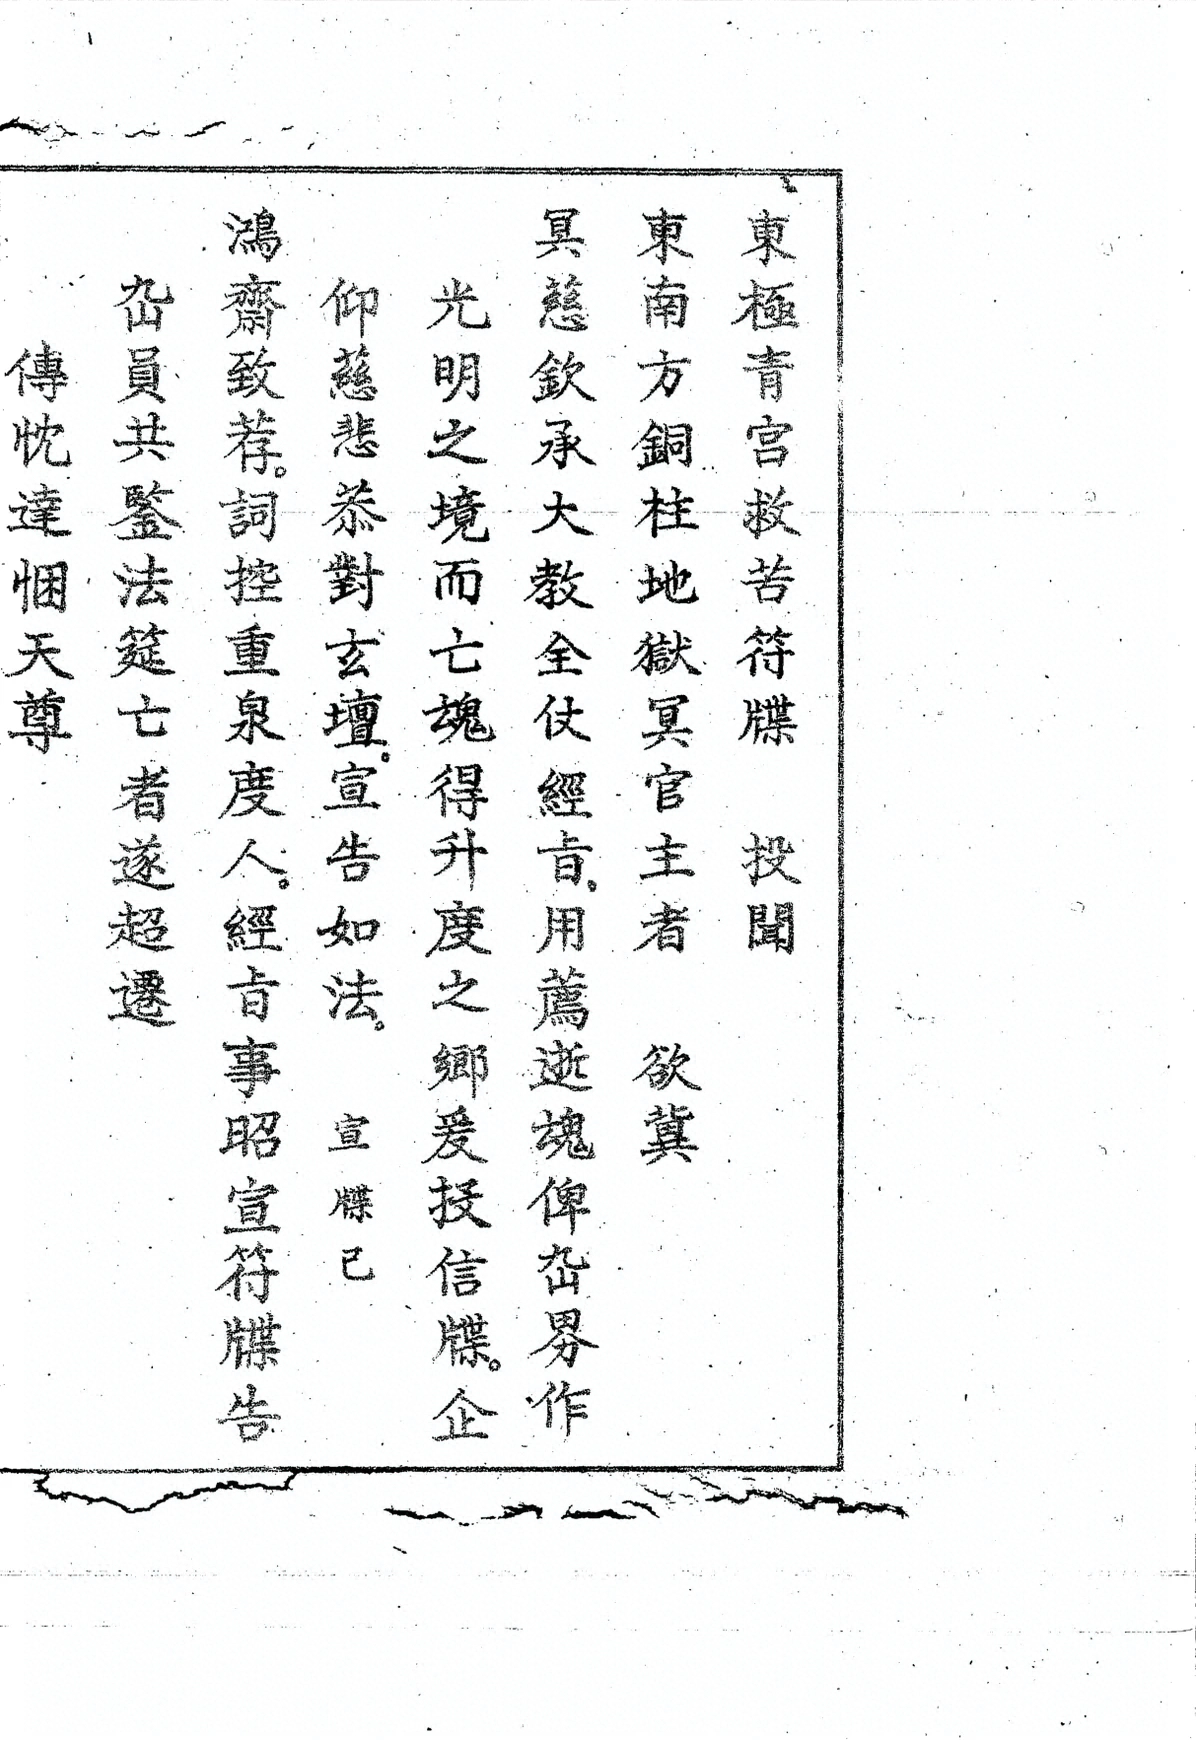 東極青宮救苦符牒　投聞
東南方銅柱地獄冥官主者　欲冀
冥慈欽承大教全仗經旨。用薦逝魂俾嵒界作
光明之境而亡魂得升度之鄉爰投信牒。企
仰慈悲恭對玄壇。宣告如法。　宣牒已
鴻齋致荐。詞控重泉度人。經旨事昭宣符牒告
員共鑒法筵亡者遂超遷
傳忱達悃天尊